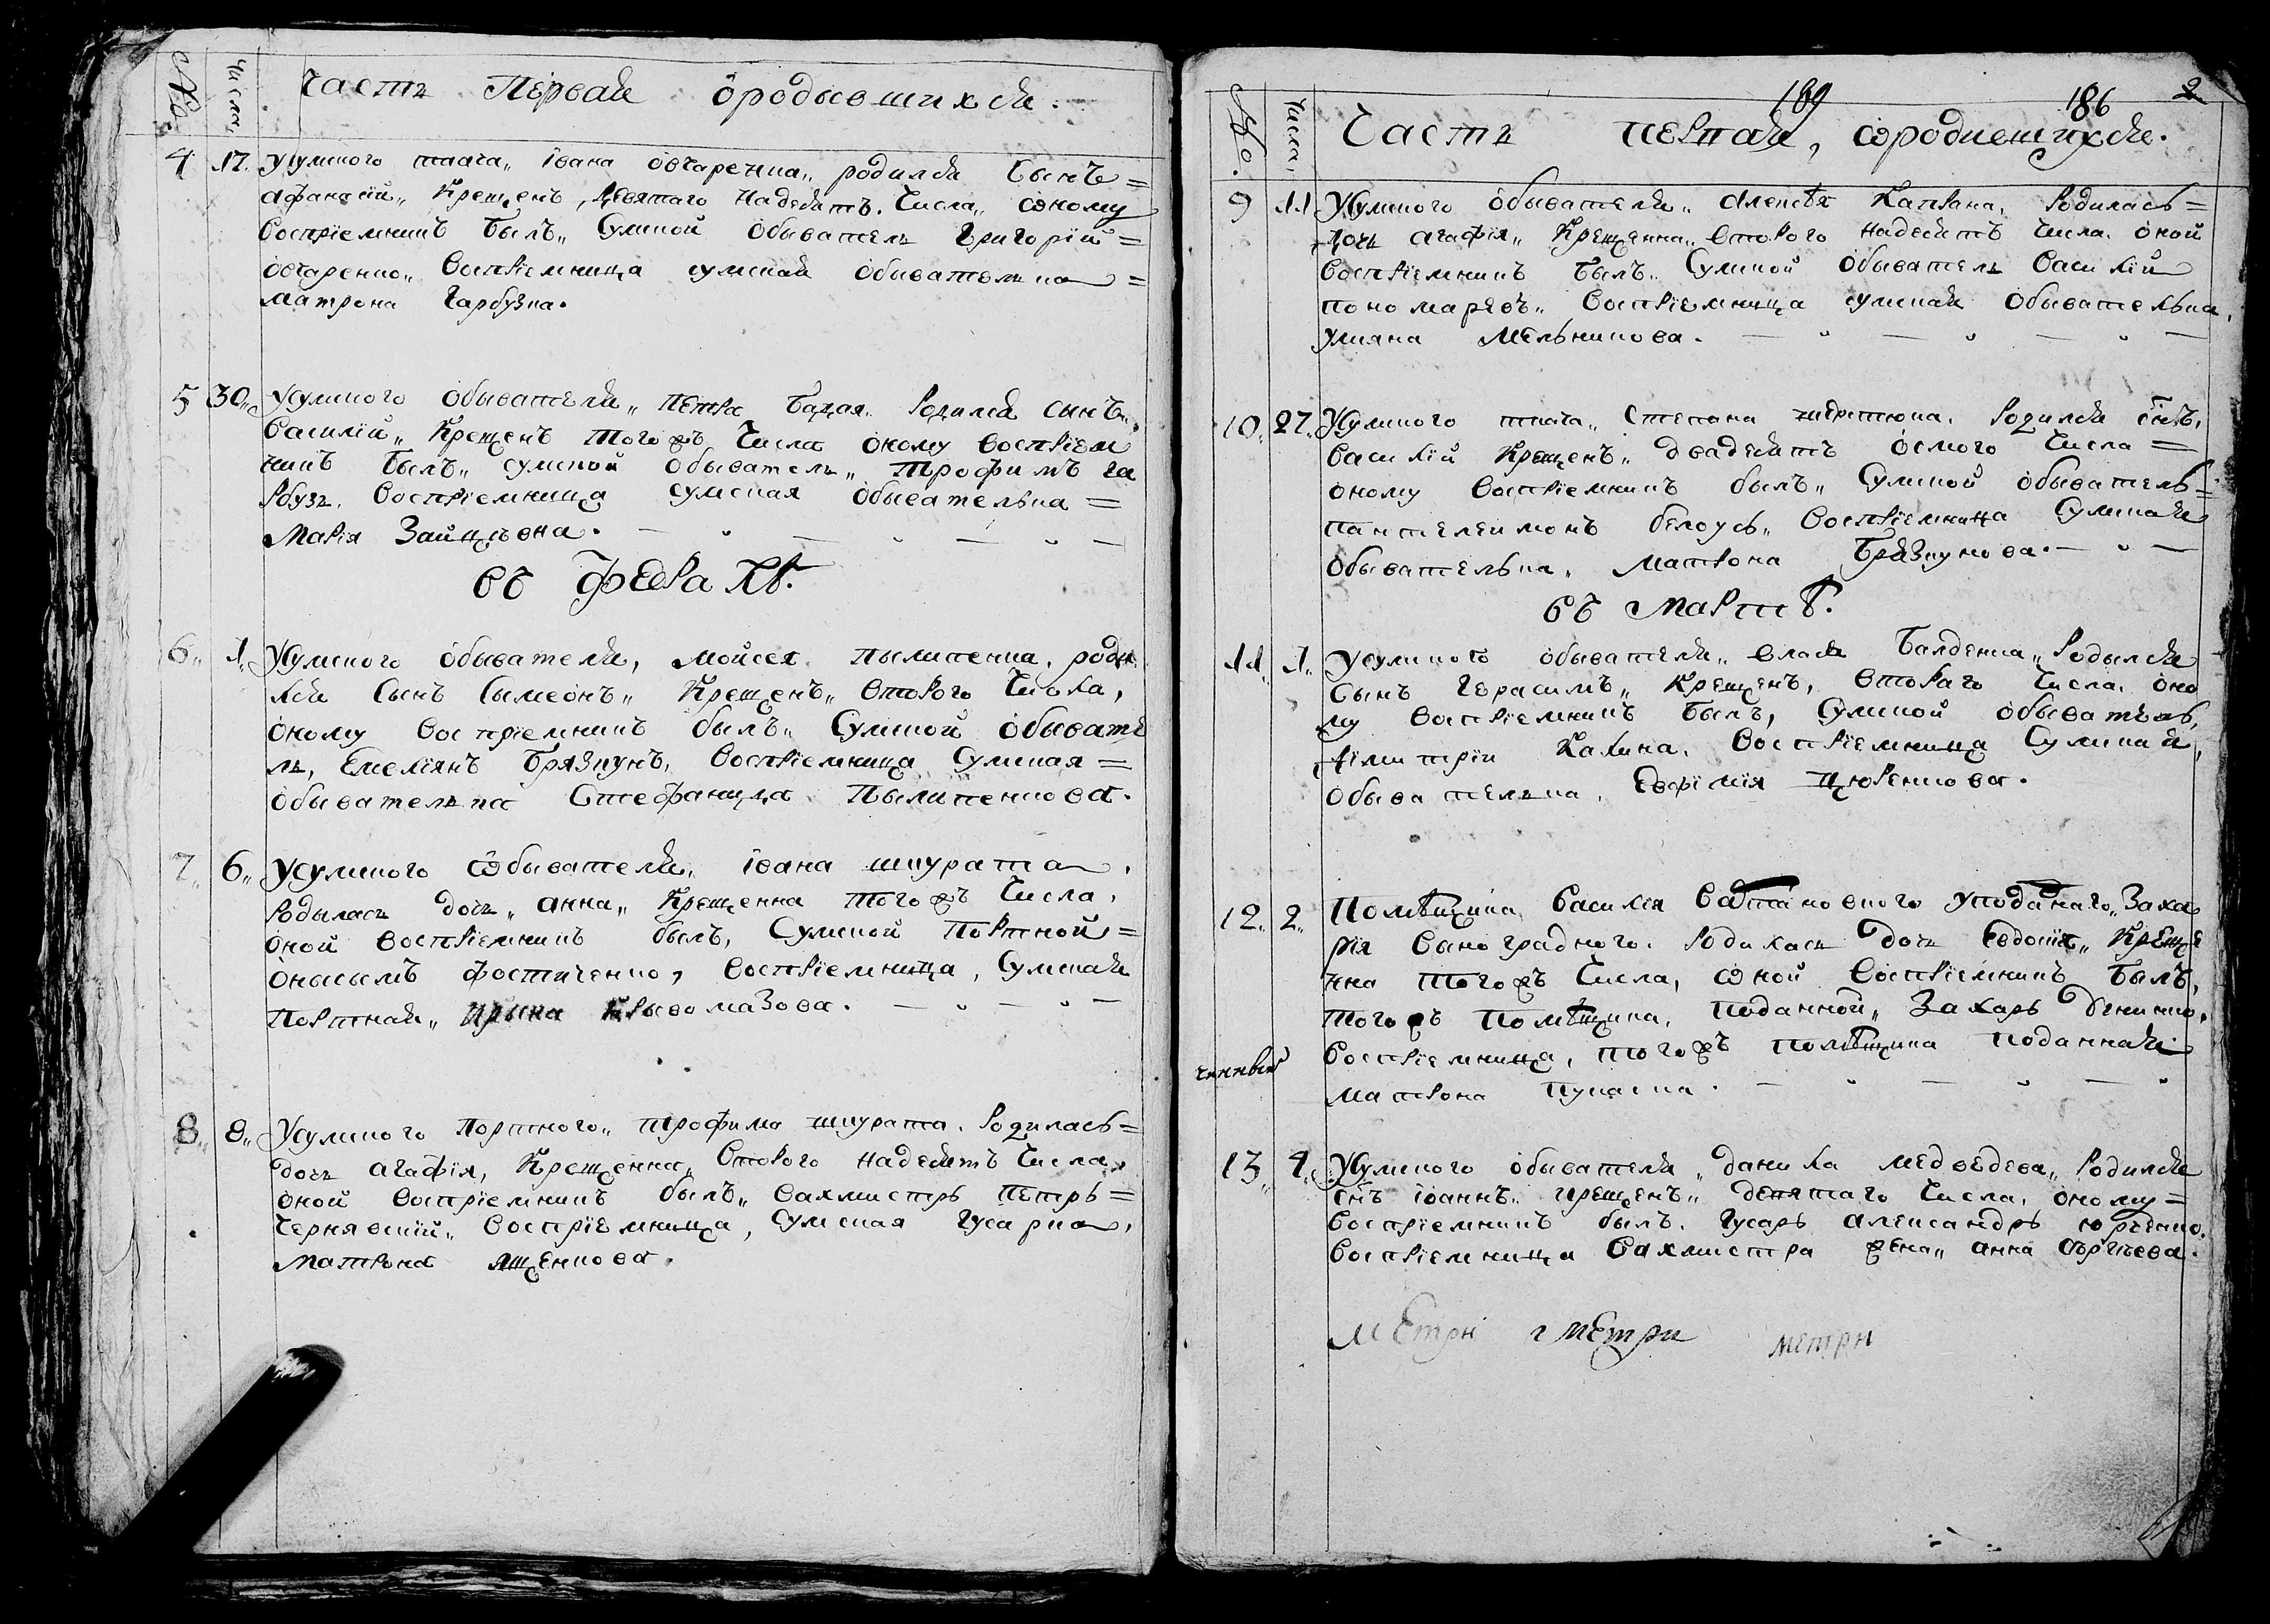 № Числа Часть Первая ѡродывшихся.
4 17. Усумского ткача„ Івана Овчаренка„ родился Сынъ=
Афанасій„ Крещенъ, девятаго надесять. Числа„ ѡному
Воспріемникъ Былъ„ Сумской Обыватель Григорій=
Овчаренко„ Воспріемница сумская Обывателька=
матрона Гарбузка.
5 30„ Усумского Обывателя„ Петра родился сынъ„
Василій„ Крещенъ Тогожъ Числа оному Воспріем
никъ Былъ„ сумской Обыватель„ Трофимъ га
рбузъ. Воспріемница сумская Обывателька=
Марія Зайцѣвна.
въ февралѣ.
6„ 1„ Усумского Обывателя, мойсея пылипенка, роди
лся Сынъ Сымеонъ„ Крещенъ„ Второго Числа,
оному воспріемникъ былъ„ Сумской Обывате
ль, Емеліянъ Брязкунъ, воспріемница Сумская=
обывателька Стефанида Пылипенкова.
7„ 6„ Усумского ѡбывателя„ івана шкурата.
Родылась дочь„ анна„ Крещенна тогожъ Числа,
оной воспріемникъ былъ, Сумской Портной=
Онысымъ фостиченко, воспріемница, Сумская
Портная„ Ирына Крывомазова.
8„ 8„ Усумского Портного„ трофима шкурата. Родилась=
дочь агафія, Крещенна„ Второго надесять Числа„
оной воспріемникъ былъ„ Вахмистръ Петръ=
Чернявскій„ Воспріемница, Сумская Гусарка,
матрона ященкова.
189 186 2
№ Числа Часть первая, ѡродившихся.
9 11 Усумского Обывателя„ Алексѣя Каплана, Родилась=
Дочь агафія„ Крещенна„ второго надесять Числа. оной
воспріемникъ Былъ„ Сумской Обыватель Василій
пономаревъ„ Воспріемница сумская Обывателька,
уліяна Мельникова.
10„ 27„ Усумского ткача„ Степана Родился Снъ,
Василій Крещенъ„ двадесять осмого Числа=
оному Воспріемникъ былъ„ Сумской обыватель=
пантелеимонъ белоусъ„ Воспріемница Сумская
обывателька„ матрона Брязкунова.
въ мартѣ.
11„ 1„ Усумского обывателя„ власа Балденка„ Родылся
Сынъ Герасимъ„ Крещенъ, втораго Числа. оно
му воспріемникъ Былъ, Сумской обыватель,
дімитріи Калина. Воспріемница Сумская,
обывателька, Евфімія
12„ 2„ Помѣщика Василія уподаннаго„ Заха
рія Выноградного. Родилась дочь Евдокія„ Креще
нна Тогожъ Числа, ѡной Воспріемникъ Былъ,
тогожъ Помѣщика, поданной„ Захаръ
Воспріемница, тогожъ помѣщика поданная
матрона
13„ 4„ Усумского обывателя„ данила медведева„ Родился
Снъ іоаннъ„ крещенъ„ девятаго Числа, оному=
воспріемникъ былъ. Гусаръ александръ юрченко.
воспріемница Вахмистра жена„ анна
метри метри метри